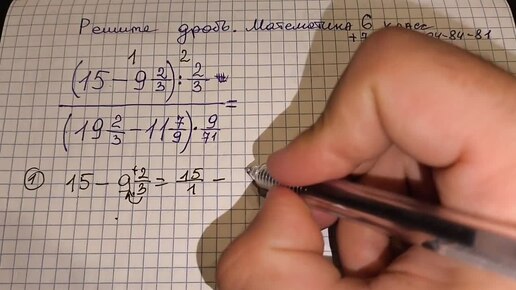 Решите дробь. Математика 6 класс
+7 84-81
1 2
(15 - 9 2/3) : 2/3
(19 2/3 - 11 7/9) · 9/71 =
① 15 - 9 2/3 = 15/1 -